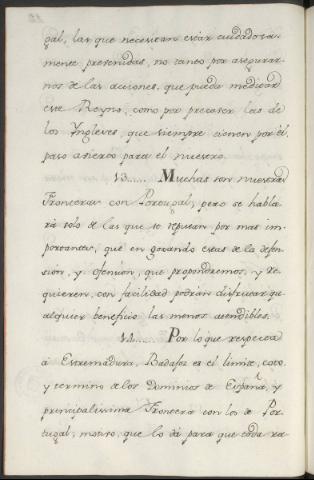 gal, las que necesitan estàr cuidadosa-
mente prevenidas, no tanto por asegurar-
nos de las acciones, que pueda meditar
este Reyno, como por precaver las de
los Ingleses, que siempre tienen por èl
paso avierto para el nuestro.
13...... Muchas son nuestras
Fronteras con Portugàl; pero se habla-
rà solo de las que se reputan por mas im-
portantes, que en gozando estas de la defen-
sion, y ofension, que propondremos, y re-
quieren, con facilidad podràn disfrutar qu-
alquier beneficio las menos atendibles.
14...... Por lo que respecta
à Estremadura, Badajoz es el limite, coto
y termino de los Dominios de España, y
principalisima Frontera con los de Por-
tugal; motivo, que lo dà para que toda ra-